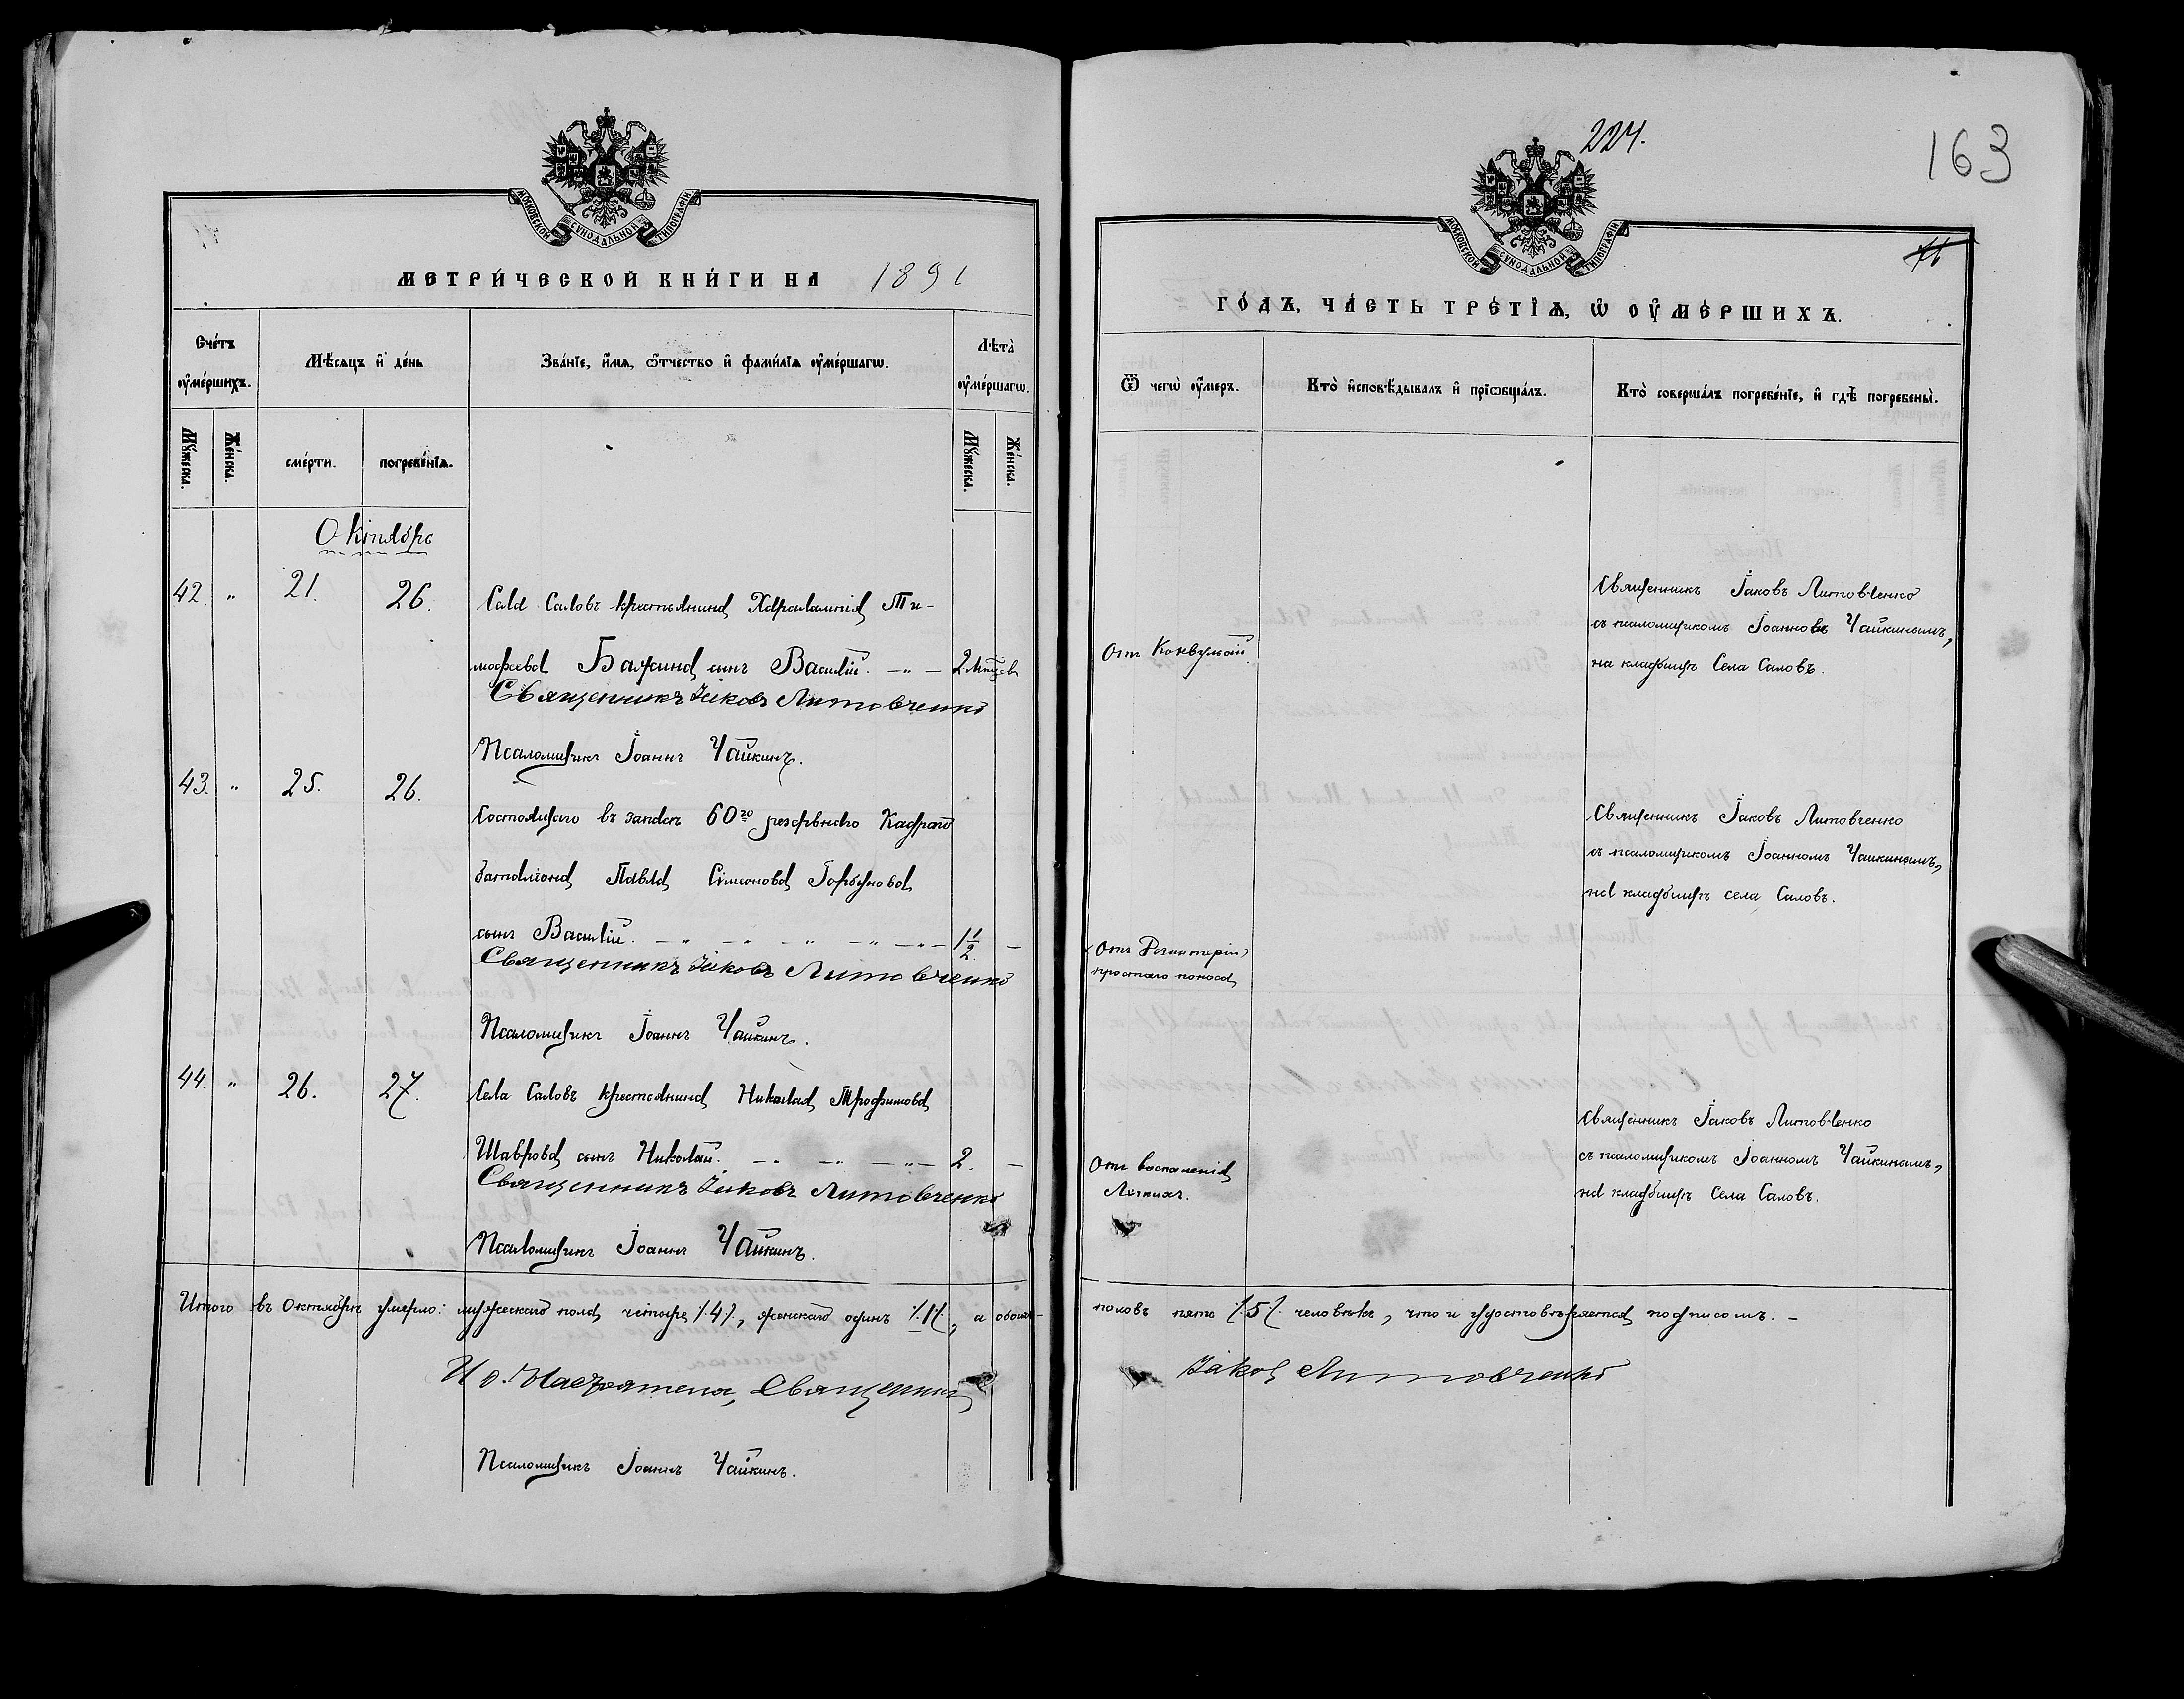 МОСКОВСКОЙ СѴНОДАЛЬНОЙ ТИПОГРАФІИ
МЕТРИ́ЧЕСКОЙ КНИ́ГИ НА 1891
Сче́тъ ᲂу҆ме́ршихъ.
Мѣ́сяцъ и҆ де́нь
Зва́нїе, и҆́мѧ, ѻ҆́тчество и҆ фами́лїѧ ᲂу҆ме́ршагѡ.
Лѣта̀ ᲂу҆ме́ршагѡ.
Мꙋ́жеска.
Же́нска.
сме́рти.
погребе́нїѧ.
Мꙋ́жеска.
Же́нска.
Октябрь
42. " 21. 26. Села Саловъ крестьянина Харалампія Ти-
мофеева Бажина сынъ Василій. — " — 2 мѣсев
Священникъ Іаковъ Литовченко
Псаломщикъ Іоаннъ Чайкинъ.
43. " 25. 26.
Состоящаго въ запасѣ 60го резервнаго Кадраго
баталіона Павла Сімеонова Горбунова
сынъ Василій. — " — " — " — " — 1 1/2. —
Священникъ Іаковъ Литовченко
Псаломщикъ Іоаннъ Чайкинъ.
44. " 26. 27. Села Саловъ крестьянина Николая Трофимова
Шаврова сынъ Николай. — " — " — " — 2. —
Священникъ Іаковъ Литовченко
Псаломщикъ Іоаннъ Чайкинъ.
Итого въ Октябрѣ умерло: мужескаго пола четыре /.4./, женскаго одинъ /.1./, а обоихъ
И. о. Настоятеля, Священникъ
Псаломщикъ Іоаннъ Чайкинъ.
224.
163
МОСКОВСКОЙ СѴНОДАЛЬНОЙ ТИПОГРАФІИ
ГО́ДЪ, ЧА́СТЬ ТРЕ́ТІѦ, Ѡ҆ ОУ҆МЕ́РШИХЪ.
Ѿ чегѡ̀ ᲂу҆́меръ.
Кто̀ и҆сповѣ́дывалъ и҆ прїѡбща́лъ.
Кто̀ соверша́лъ погребе́нїе, и҆ гдѣ̀ погребены̀.
Отъ Конвульсій.
Священникъ Іаковъ Литовченко
съ псаломщикомъ Іоанномъ Чайкинымъ,
на кладбищѣ Села Саловъ.
Отъ Дизентеріи
простаго поноса
Священникъ Іаковъ Литовченко
съ псаломщикомъ Іоанномъ Чайкинымъ,
на кладбищѣ села Саловъ.
Отъ воспаленія
Легкихъ.
Священникъ Іаковъ Литовченко
съ псаломщикомъ Іоанномъ Чайкинымъ,
на кладбищѣ Села Саловъ.
половъ пять /.5./ человѣкъ, что и удостовѣряется подписомъ. —
Іаковъ Литовченко